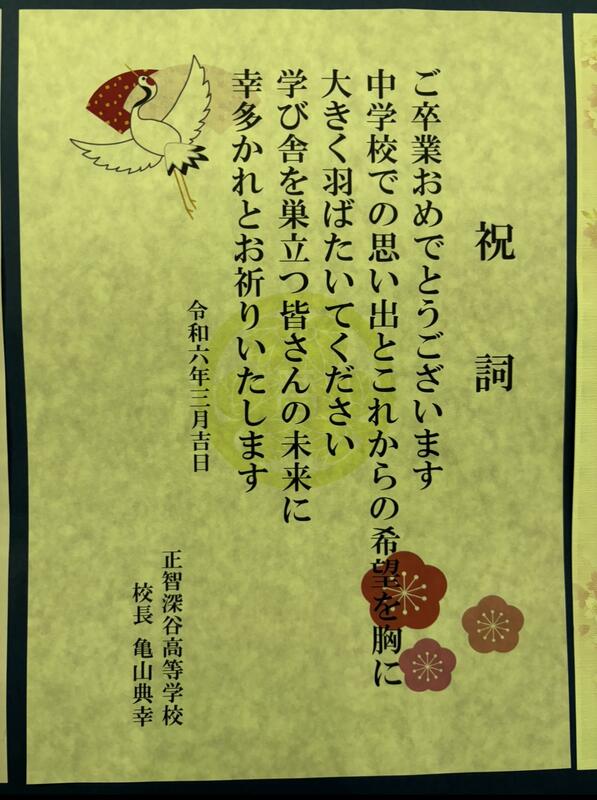 祝詞
ご卒業おめでとうございます
中学校での思い出とこれからの希望を胸に
大きく羽ばたいてください
学び舎を巣立つ皆さんの未来に
幸多かれとお祈りいたします
令和六年三月吉日
正智深谷高等学校
校長 亀山典幸